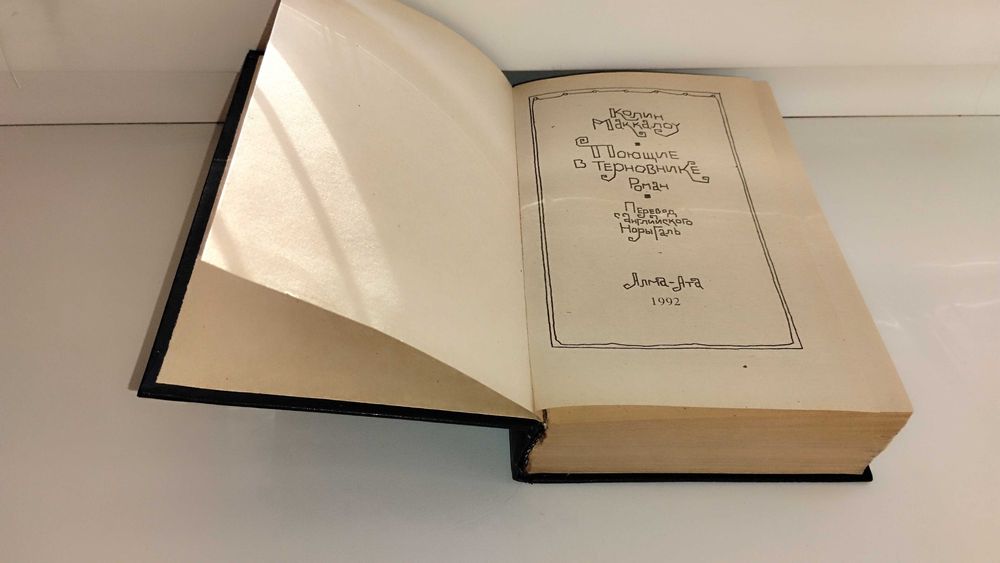 Колин
Маккалоу
Поющие
в терновнике
Роман
Перевод
с английского
Норы Галь
Алма-Ата
1992